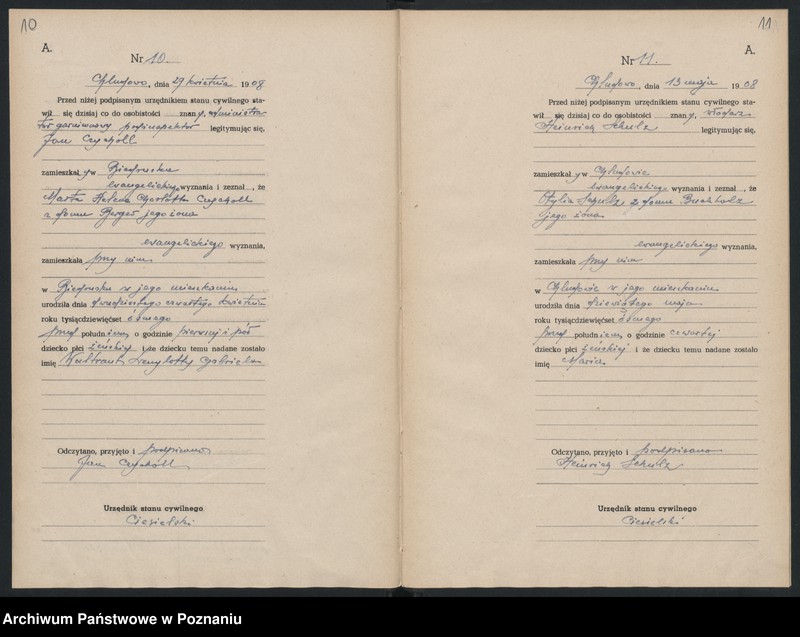 10
A.
Nr 10.
Chludowo, dnia 29 kwietnia 1908
Przed niżej podpisanym urzędnikiem stanu cywilnego sta-
wił się dzisiaj co do osobistości znany, administra
tor legitymując się,
Jan
zamieszkały w Biedrusku
ewangelickiego wyznania i zeznał, że
Marta Helena Charlotta
z domu Berger jego żona
ewangelickiego wyznania,
zamieszkała przy nim
w Biedrusku w jego mieszkaniu
urodziła dnia dwudziestego czwartego kwietnia
roku tysiącdziewięćset ósmego
przed południem, o godzinie pierwszej i pół
dziecko płci żeńskiej i że dziecku temu nadane zostało
imię Gabriela
Odczytano, przyjęto i podpisano
Jan
Urzędnik stanu cywilnego
Ciesielski
11
A.
Nr 11.
Chludowo, dnia 13 maja 1908
Przed niżej podpisanym urzędnikiem stanu cywilnego sta-
wił się dzisiaj co do osobistości znany, włodarz
Heinrich Schulz legitymując się,
zamieszkały w Chludowie
ewangelickiego wyznania i zeznał, że
Otylia Schulz z domu Buchholz
jego żona
ewangelickiego wyznania,
zamieszkała przy nim
w Chludowie w jego mieszkaniu
urodziła dnia dziewiątego maja
roku tysiącdziewięćset ósmego
przed południem, o godzinie czwartej
dziecko płci żeńskiej i że dziecku temu nadane zostało
imię Maria
Odczytano, przyjęto i podpisano
Heinrich Schulz
Urzędnik stanu cywilnego
Ciesielski
Archiwum Państwowe w Poznaniu